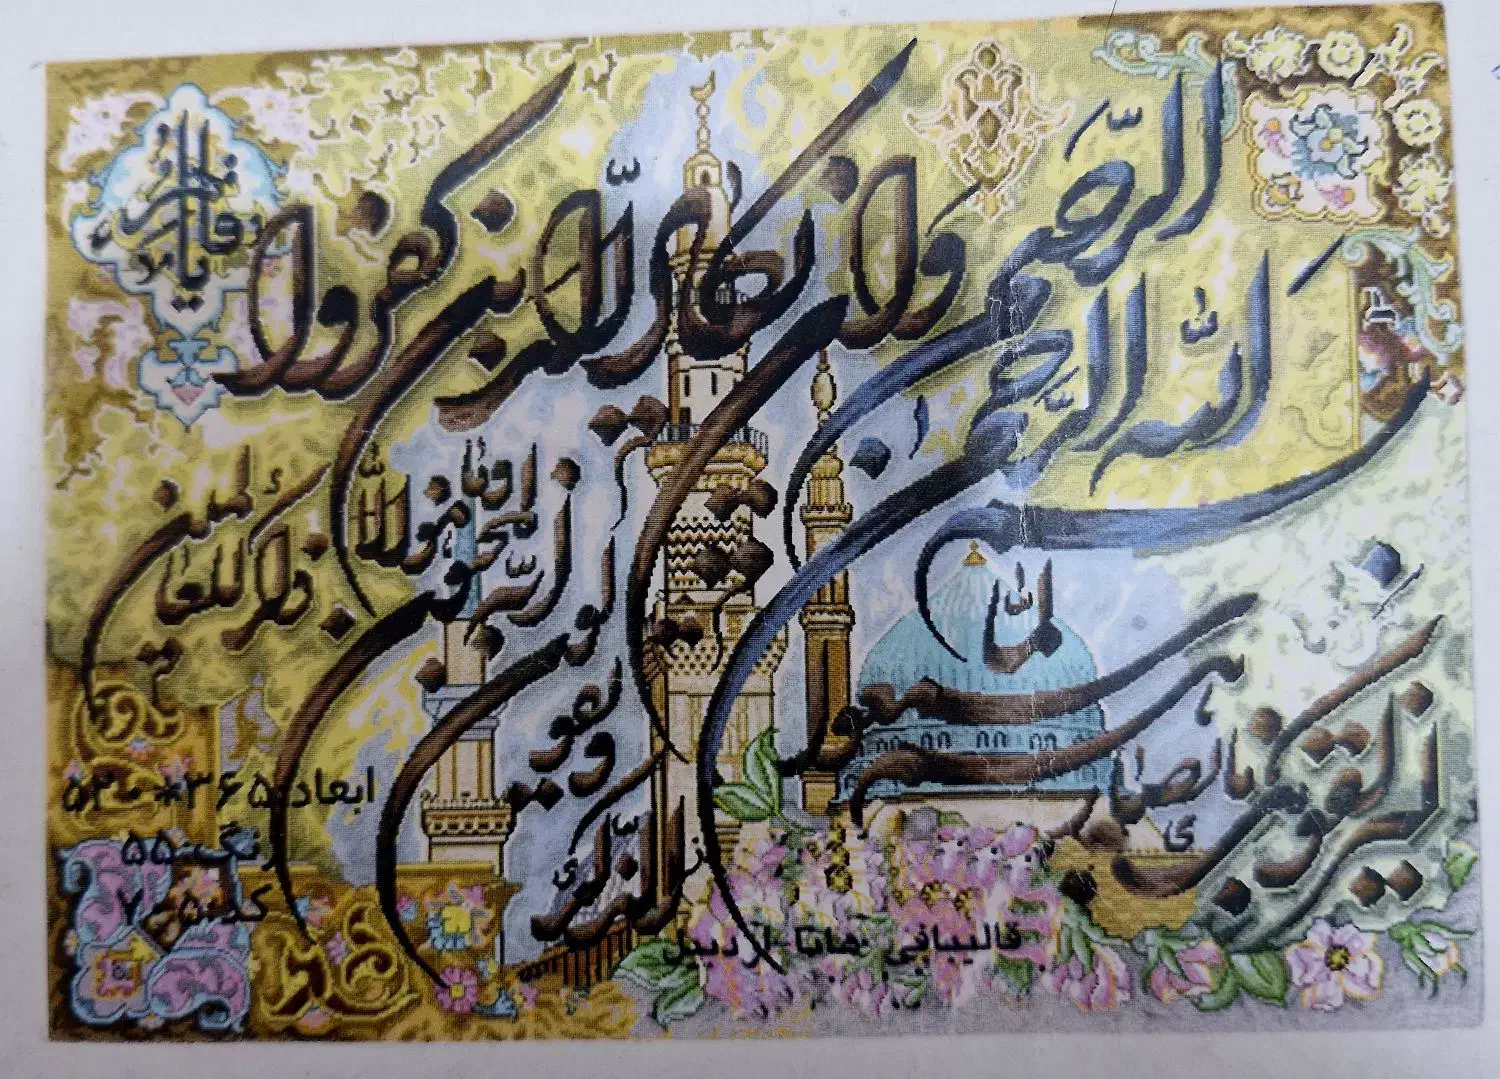 بسم الله الرحمن الرحیم
وان یکاد الذین کفروا
لیزلقونک بابصارهم
لما سمعوا الذکر
و یقولون انه لمجنون
وما هو الا ذکر للعالمین
ابعاد:۳۶۵*۵۲۰
رنگ:۵۵
قالیبافی هانا اردبیل